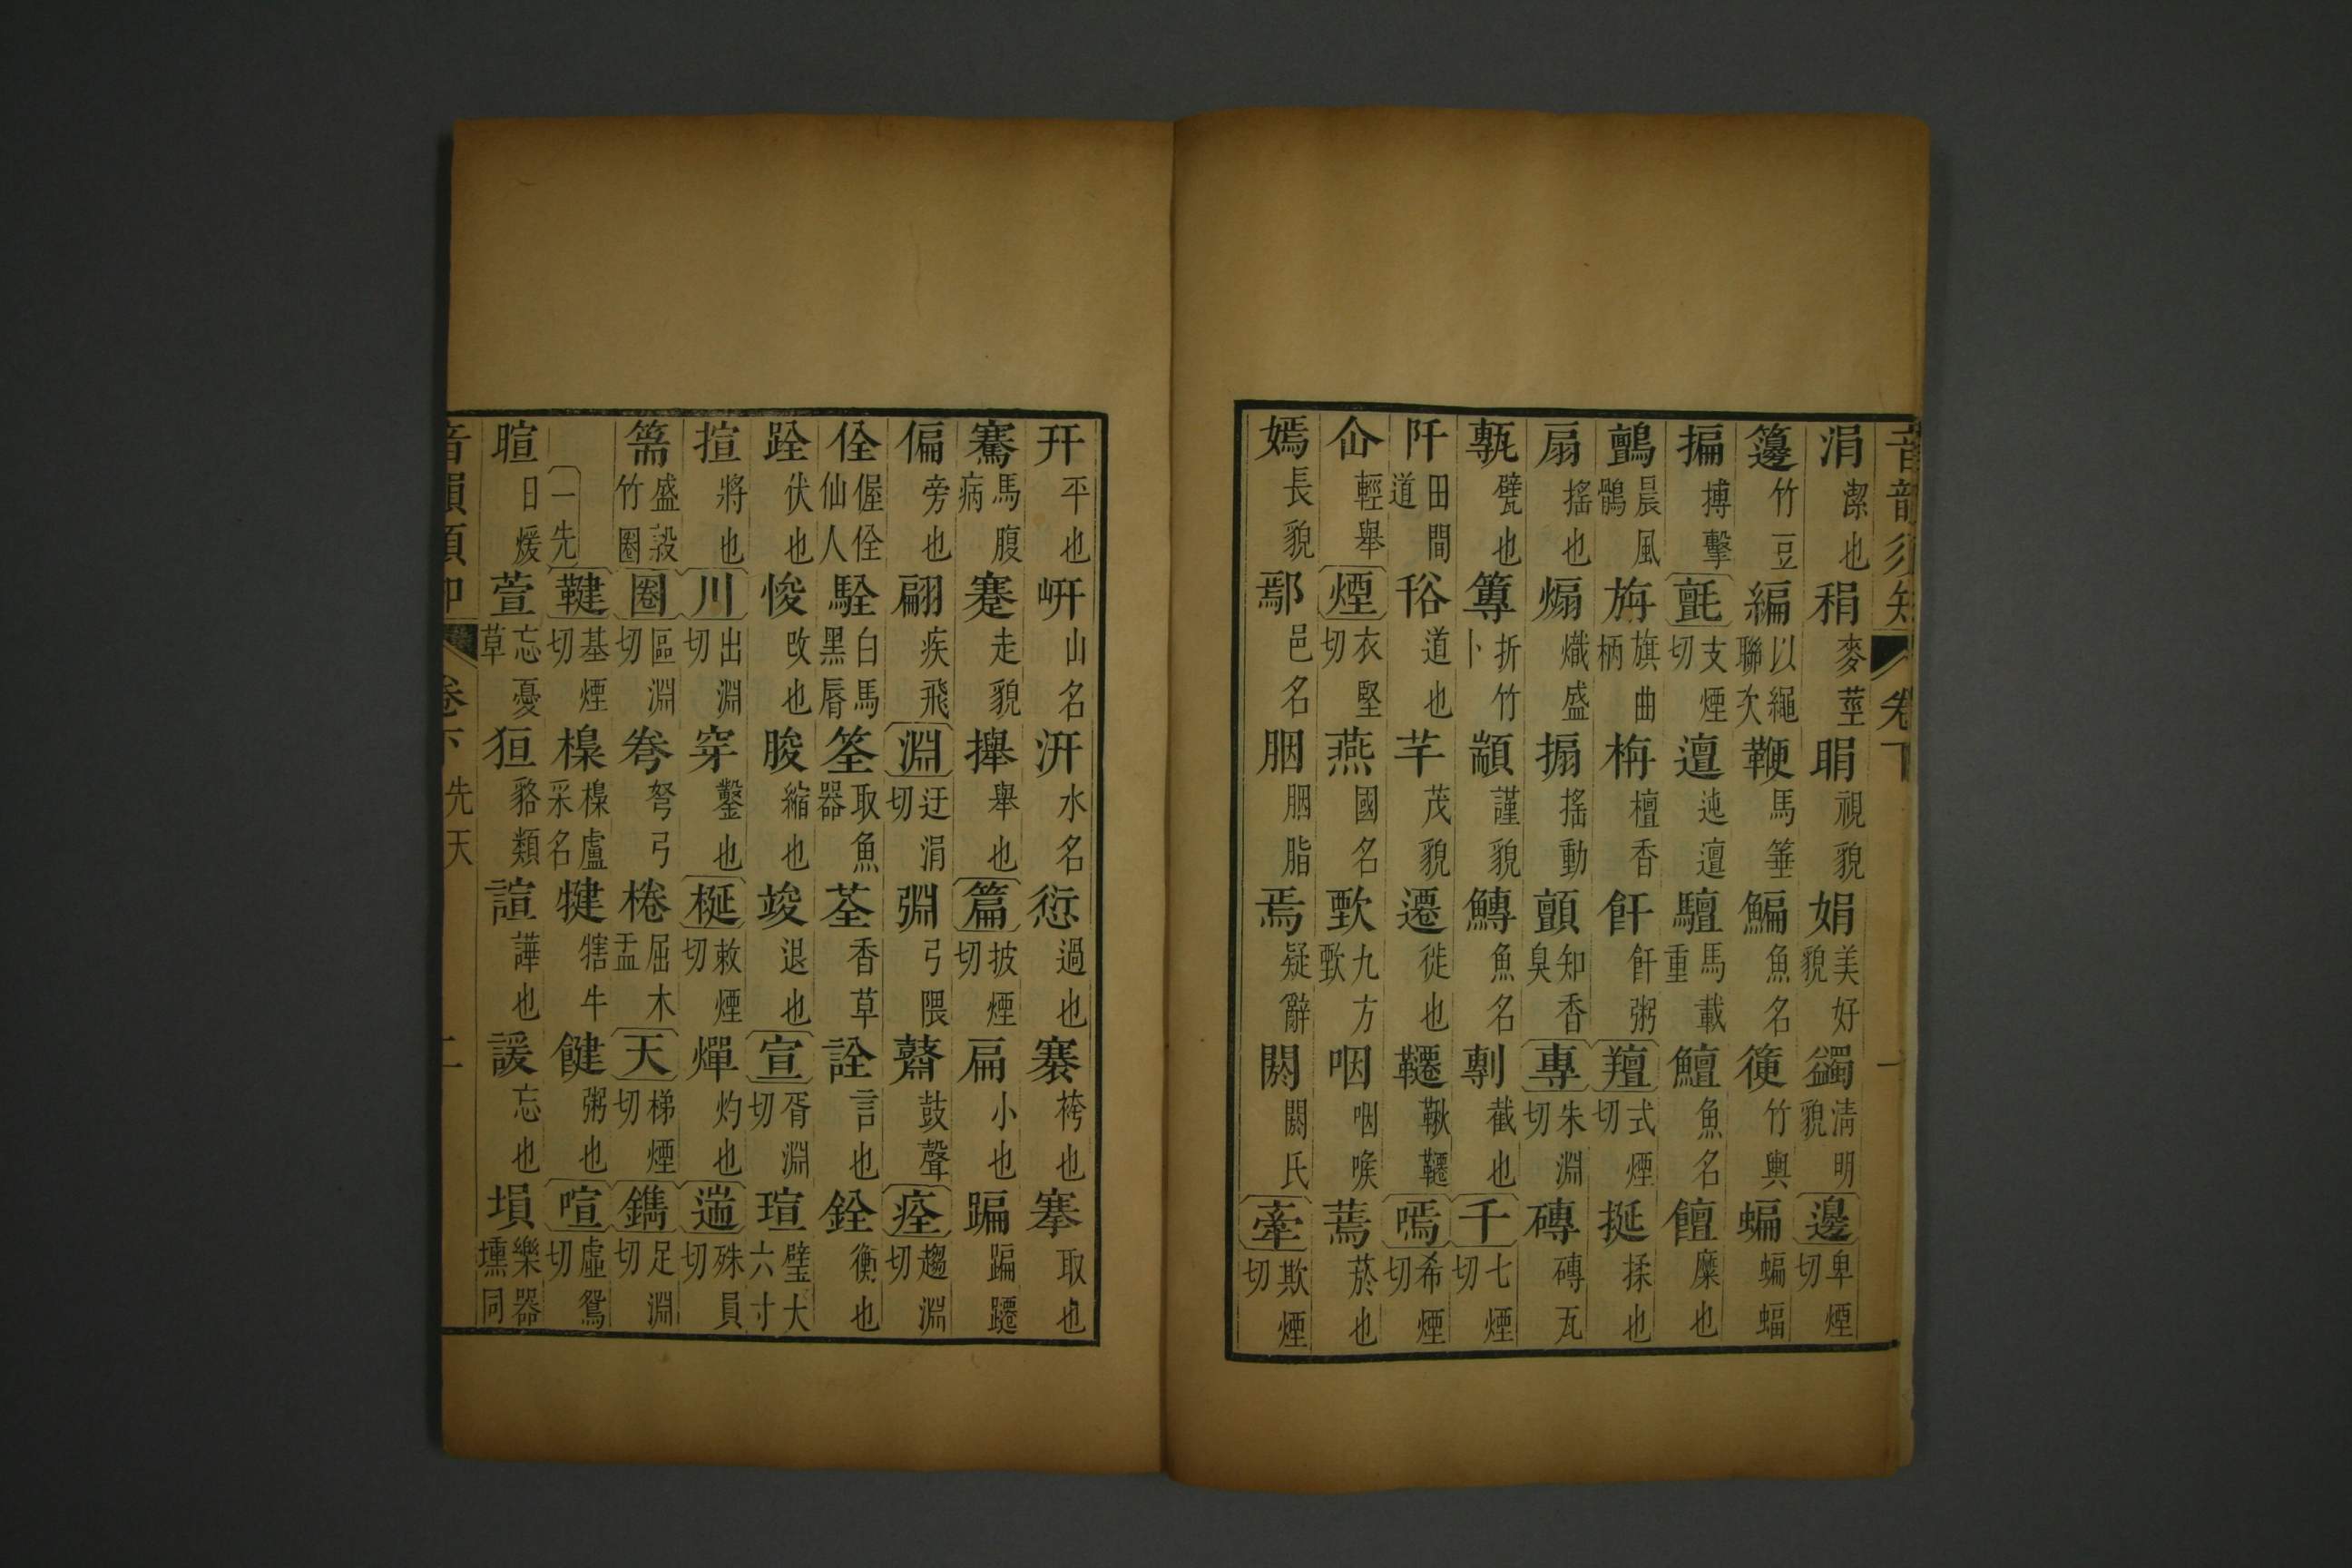 音韻須知 卷下 一
涓潔也稍麥莖睊視貌娟美好貌蠲清明貌邊卑煙切
籩竹豆編以繩聯次鞭馬箠鯿魚名箯竹輿蝙蝙蝠
揙搏擊氈支煙切邅迍邅驙馬載重鱣魚名饘糜也
鸇晨風鷂旃旗曲柄栴檀香飦飦粥羶式煙切挻揉也
扇搖也煽熾盛搧搖動顫知香臭專朱淵切磚磚瓦
甎甓也篿折竹卜顓謹貌鱄魚名剸截也千七煙切
阡田間道谸道也芊茂貌遷徙也韆鞦韆嘕希煙切
仚輕舉煙衣堅切燕國名甄九方甄咽咽喉蔫菸也
嫣長貌鄢邑名胭胭脂焉疑辭閼閼氏牽欺煙切
幵平也岍山名汧水名愆過也褰袴也搴取也
騫馬腹病蹇走貌㩃舉也篇披煙切扁小也蹁蹁躚
偏旁也翩疾飛淵迂涓切弲弓隈鼘鼓聲痊趨淵切
佺偓佺仙人駩白馬黑脣筌取魚器荃香草詮言也銓衡也
跧伏也悛改也朘縮也竣退也宣胥淵切瑄璧大六寸
揎捋也川出淵切穿鑿也梴敕煙切燀灼也遄殊員切
篅盛穀竹圈圈區淵切弮弩弓棬屈木盂天梯煙切鐫足淵切
一先鞬基煙切㮤㮤盧采名犍犗牛饘粥也喧虛鴛切
暄日煖萱忘憂草狟貉類諠譁也諼忘也塤樂器壎同
音韻須知 卷下 先天 二